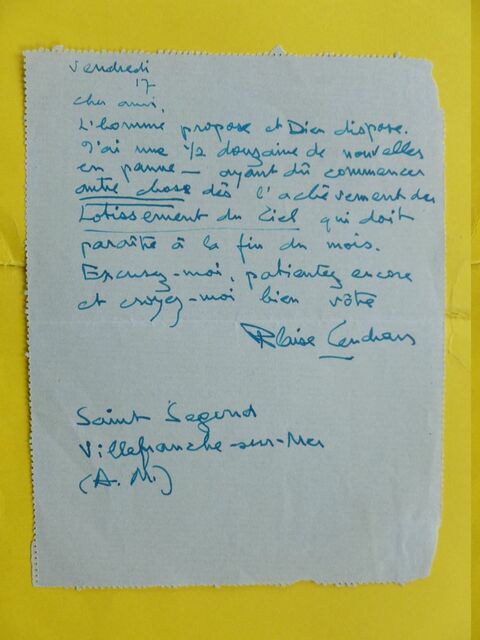 Vendredi
17
Cher ami,
L'homme propose et Dieu dispose.
J'ai une 1/2 douzaine de nouvelles
en panne — ayant dû commencer
autre chose dès l'achèvement du
Lotissement du Ciel qui doit
paraître à la fin du mois.
Excusez-moi, patientez encore
et croyez-moi bien vôtre
Blaise Cendrars
Saint Segond
Villefranche-sur-Mer
(A.M.)